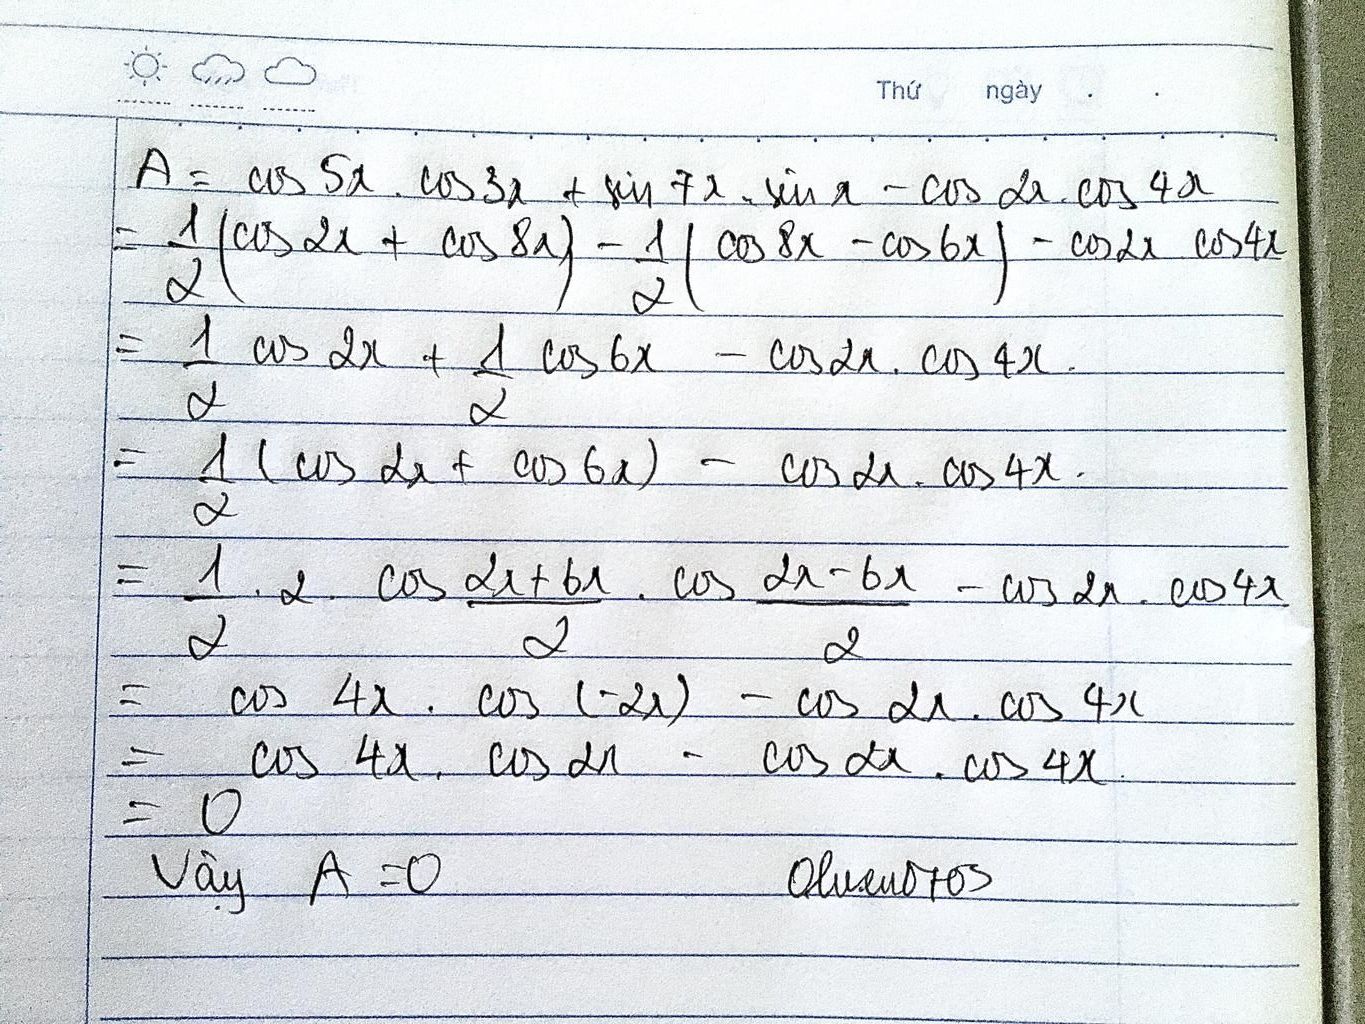 Thứ ngày . .
A = cos 5x . cos 3x + sin 7x . sin x - cos 2x . cos 4x
= 1/2 (cos 2x + cos 8x) - 1/2 (cos 8x - cos 6x) - cos 2x cos 4x
= 1/2 cos 2x + 1/2 cos 6x - cos 2x . cos 4x .
= 1/2 (cos 2x + cos 6x) - cos 2x . cos 4x .
= 1/2 . 2 . cos (2x + 6x)/2 . cos (2x - 6x)/2 - cos 2x . cos 4x
= cos 4x . cos (-2x) - cos 2x . cos 4x
= cos 4x . cos 2x - cos 2x . cos 4x .
= 0
Vậy A = 0